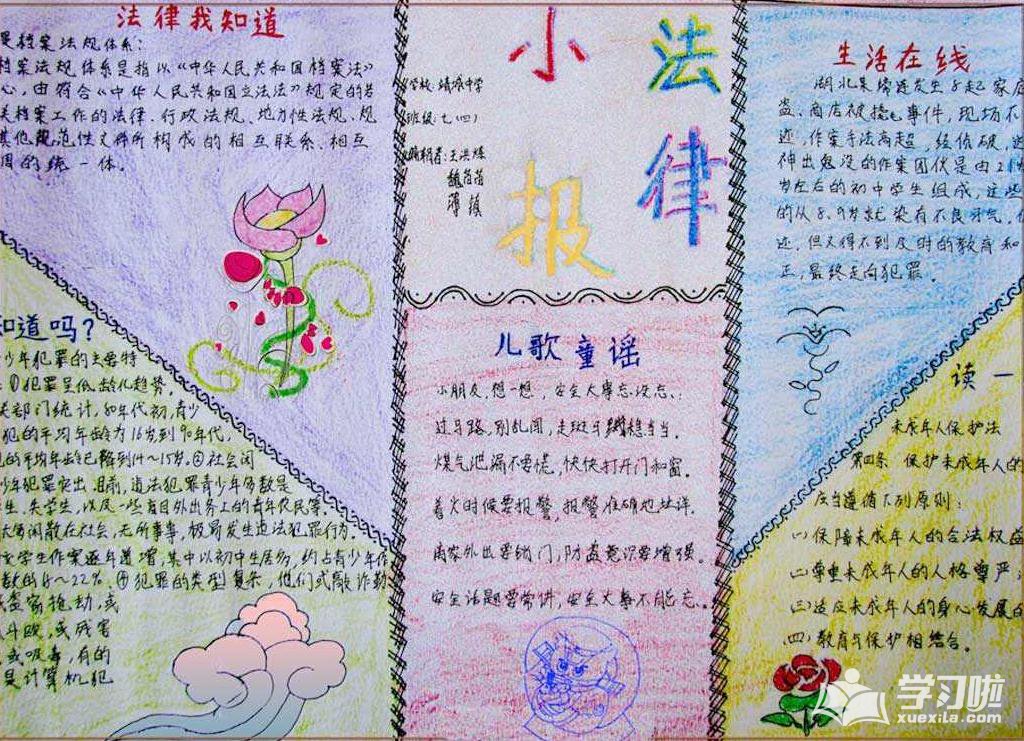 法律我知道
是档案法规体系：
档案法规体系是指以《中华人民共和国档案法》
心，由符合《中华人民共和国立法法》规定的若
关档案工作的法律、行政法规、地方性法规、规
其他规范性文件所构成的相互联系、相互
调的统一体。
小法律报
学校：靖城中学
班级：七（四）
编辑者：王洪
生活在线
湖北某 连发生8起家庭
盗、商店被撬毛事件，现场不
迹，作案手法高超，经侦破，这
神出鬼没的作案团伙是由
岁左右的初中学生组成，这些
的从8、9岁就染有不良习气，
迹，但又得不到及时的教育和
正，最终走向犯罪。
知道吗？
少年犯罪的主要特
：①犯罪呈低龄化趋势，
关部门统计，80年代初，青少
犯的平均年龄为16岁到90年代，
的平均年龄已降到14～15岁。②社会闲
少年犯罪突出、
生、失学生，以及一些盲目外出务工的青年农民等，
大多闲散在社会，无所事事，极易发生违法犯罪行为。
学生作案逐年递增，其中以初中生居多，约占青少年作
数的 ～22%。④犯罪的类型复杂，他们或敲诈勒
盗窃抢劫，或
斗殴，或残害
，或吸毒，有的
是计算机犯
儿歌童谣
小朋友，想一想，安全大事忘没忘、：
过马路，别乱闯，走斑马线稳当当。
煤气泄漏不要慌，快快打开门和窗。
着火时候要报警，报警准确地址详。
离家外出要锁门，防盗意识要增强。
安全话题要常讲，安全大事不能忘。
读一
未成年人保护法
第四条 保护未成年人的
应当遵循下列原则：
（一）保障未成年人的合法权益
（二）尊重未成年人的人格尊严；
（三）适应未成年人的身心发展的
（四）教育与保护相结合。
学习啦
xuexila.com